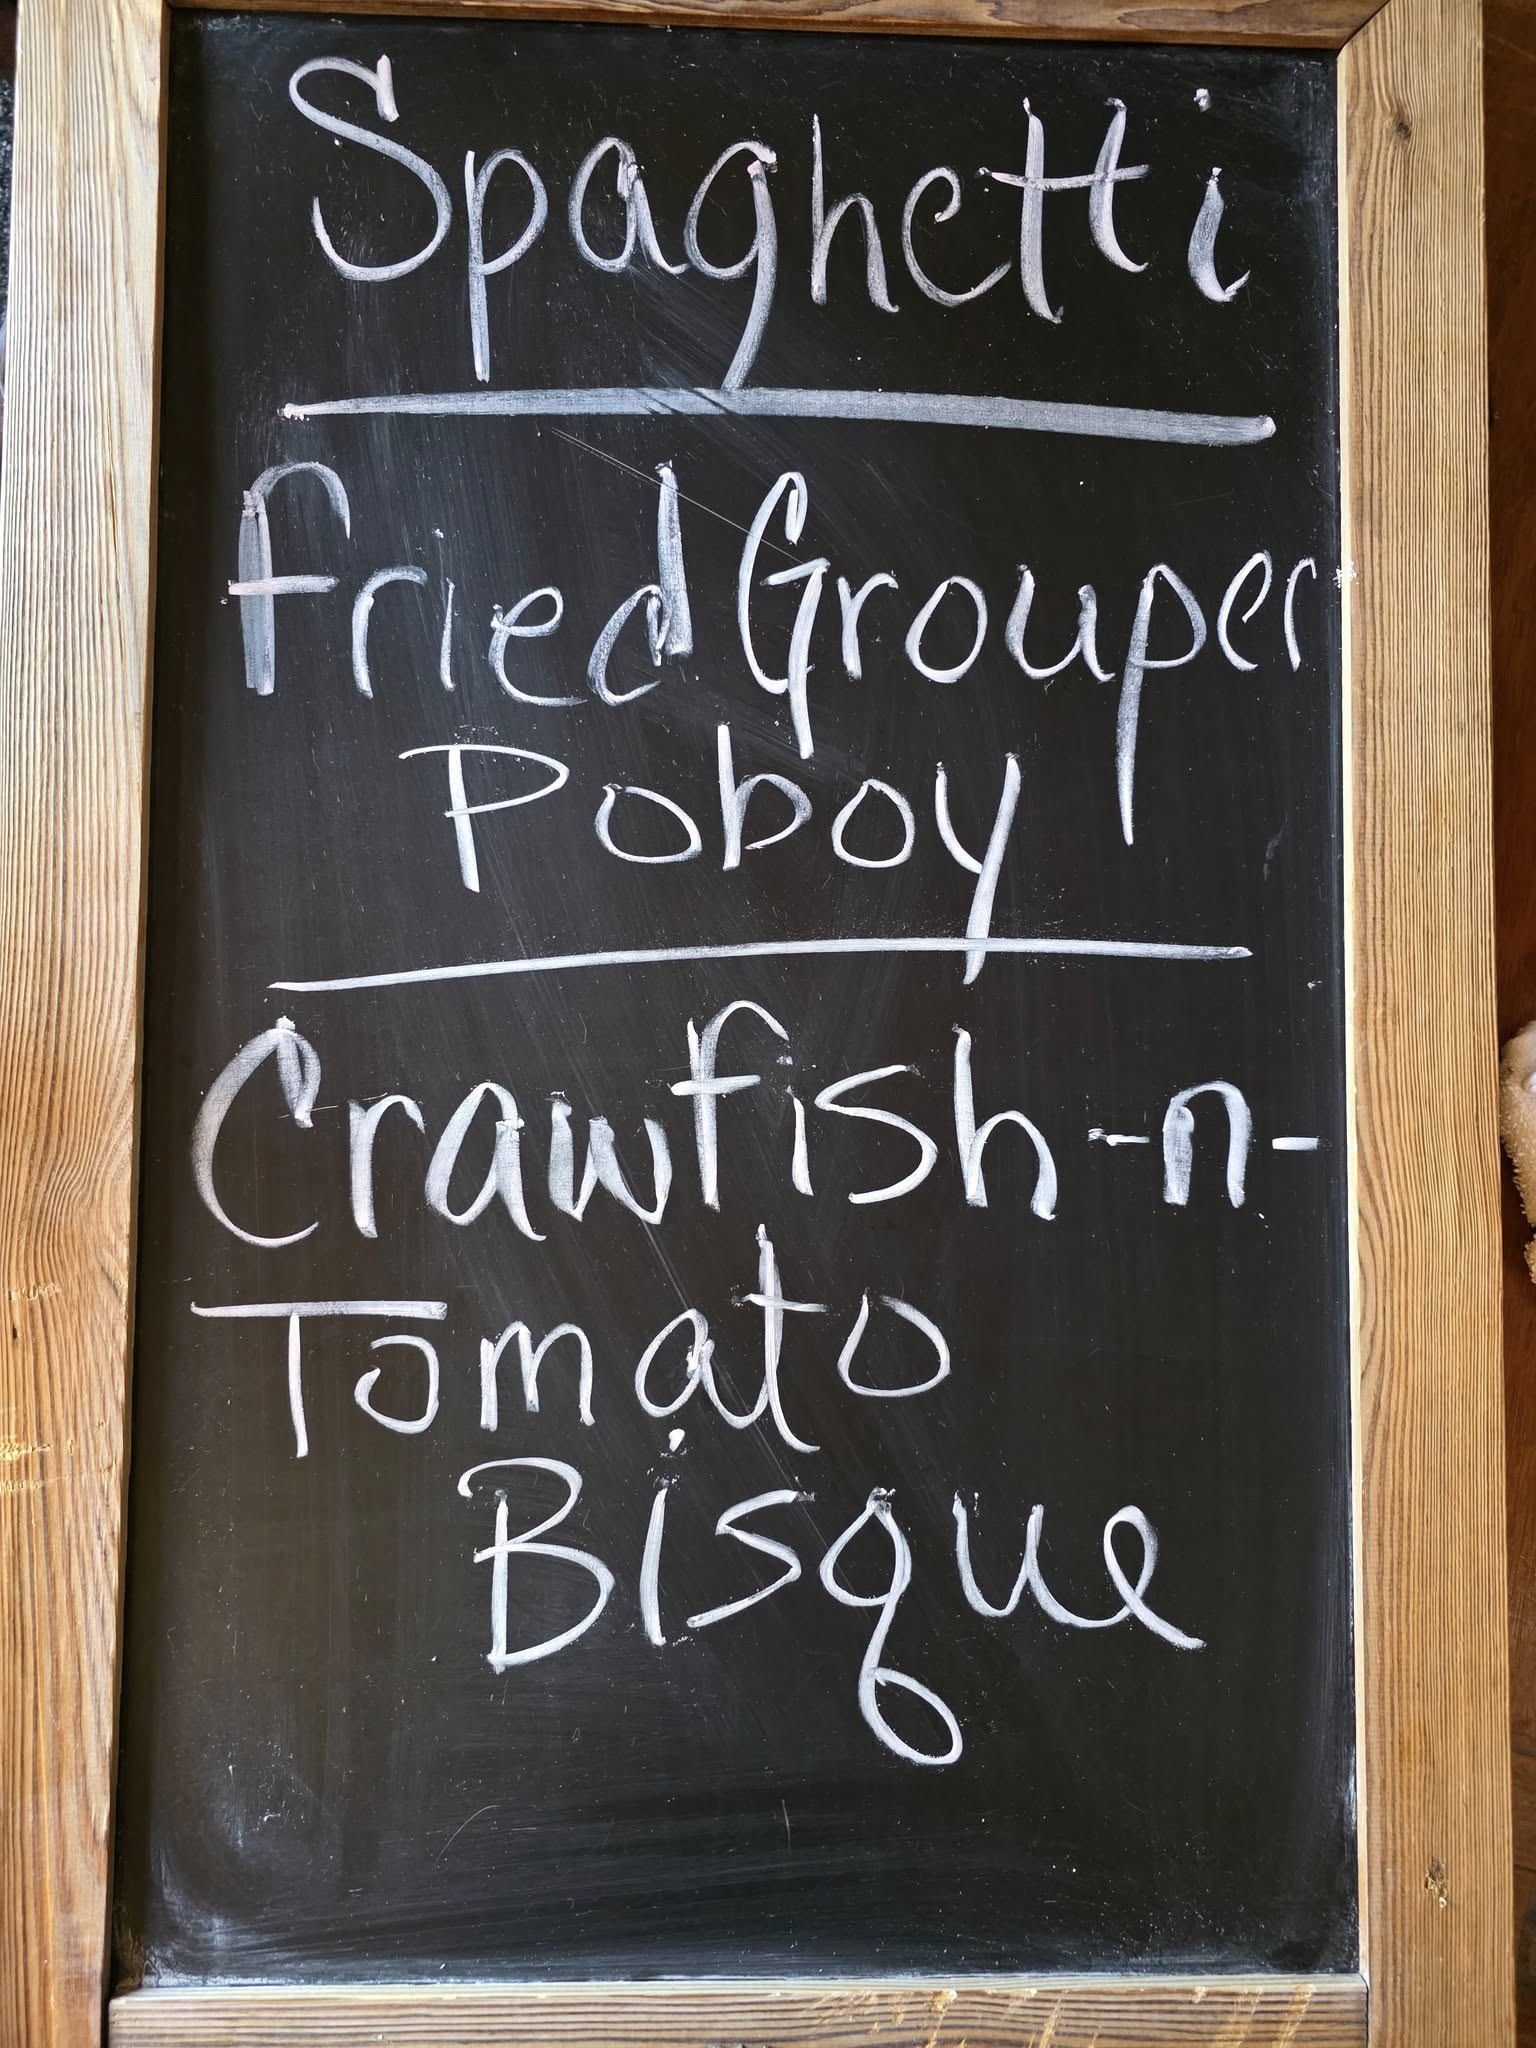 Spaghetti
Fried Grouper
Poboy
Crawfish -n-
Tomato
Bisque